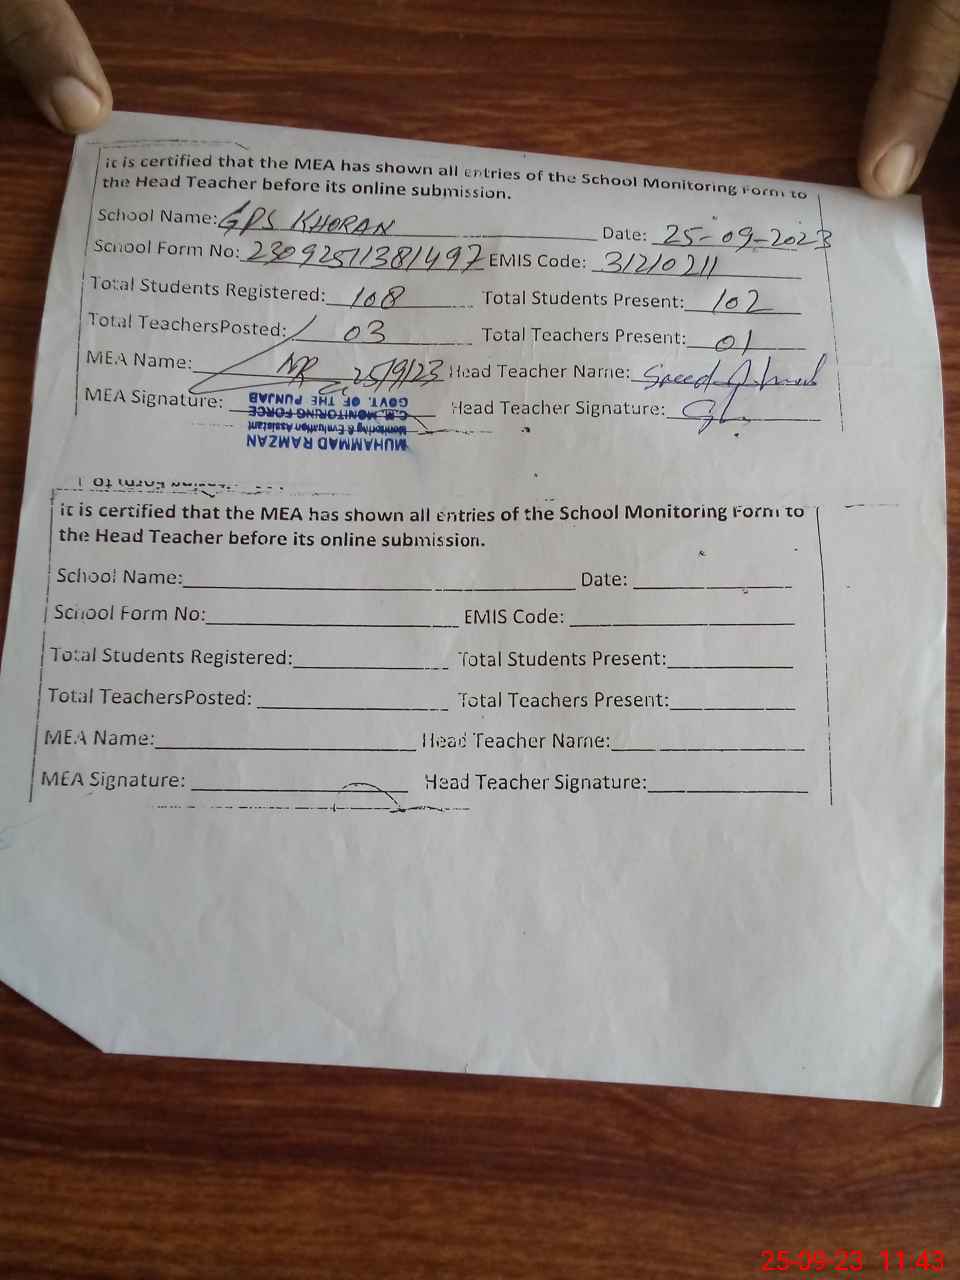 it is certified that the MEA has shown all entries of the School Monitoring Form to
the Head Teacher before its online submission.
School Name: GPS KHORAN Date: 25-09-2023
School Form No: 23092511381497 EMIS Code: 31210211
Total Students Registered: 108 Total Students Present: 102
Total TeachersPosted: 03 Total Teachers Present: 01
MEA Name: 25/9/23 Head Teacher Name: Saeed Ahmad
MEA Signature: Head Teacher Signature:
MUHAMMAD RAMZAN
Monitoring & Evaluation Assistant
C.M. MONITORING FORCE
GOVT. OF THE PUNJAB
it is certified that the MEA has shown all entries of the School Monitoring Form to
the Head Teacher before its online submission.
School Name: Date:
School Form No: EMIS Code:
Total Students Registered: Total Students Present:
Total TeachersPosted: Total Teachers Present:
MEA Name: Head Teacher Name:
MEA Signature: Head Teacher Signature:
25-09-23 11:43